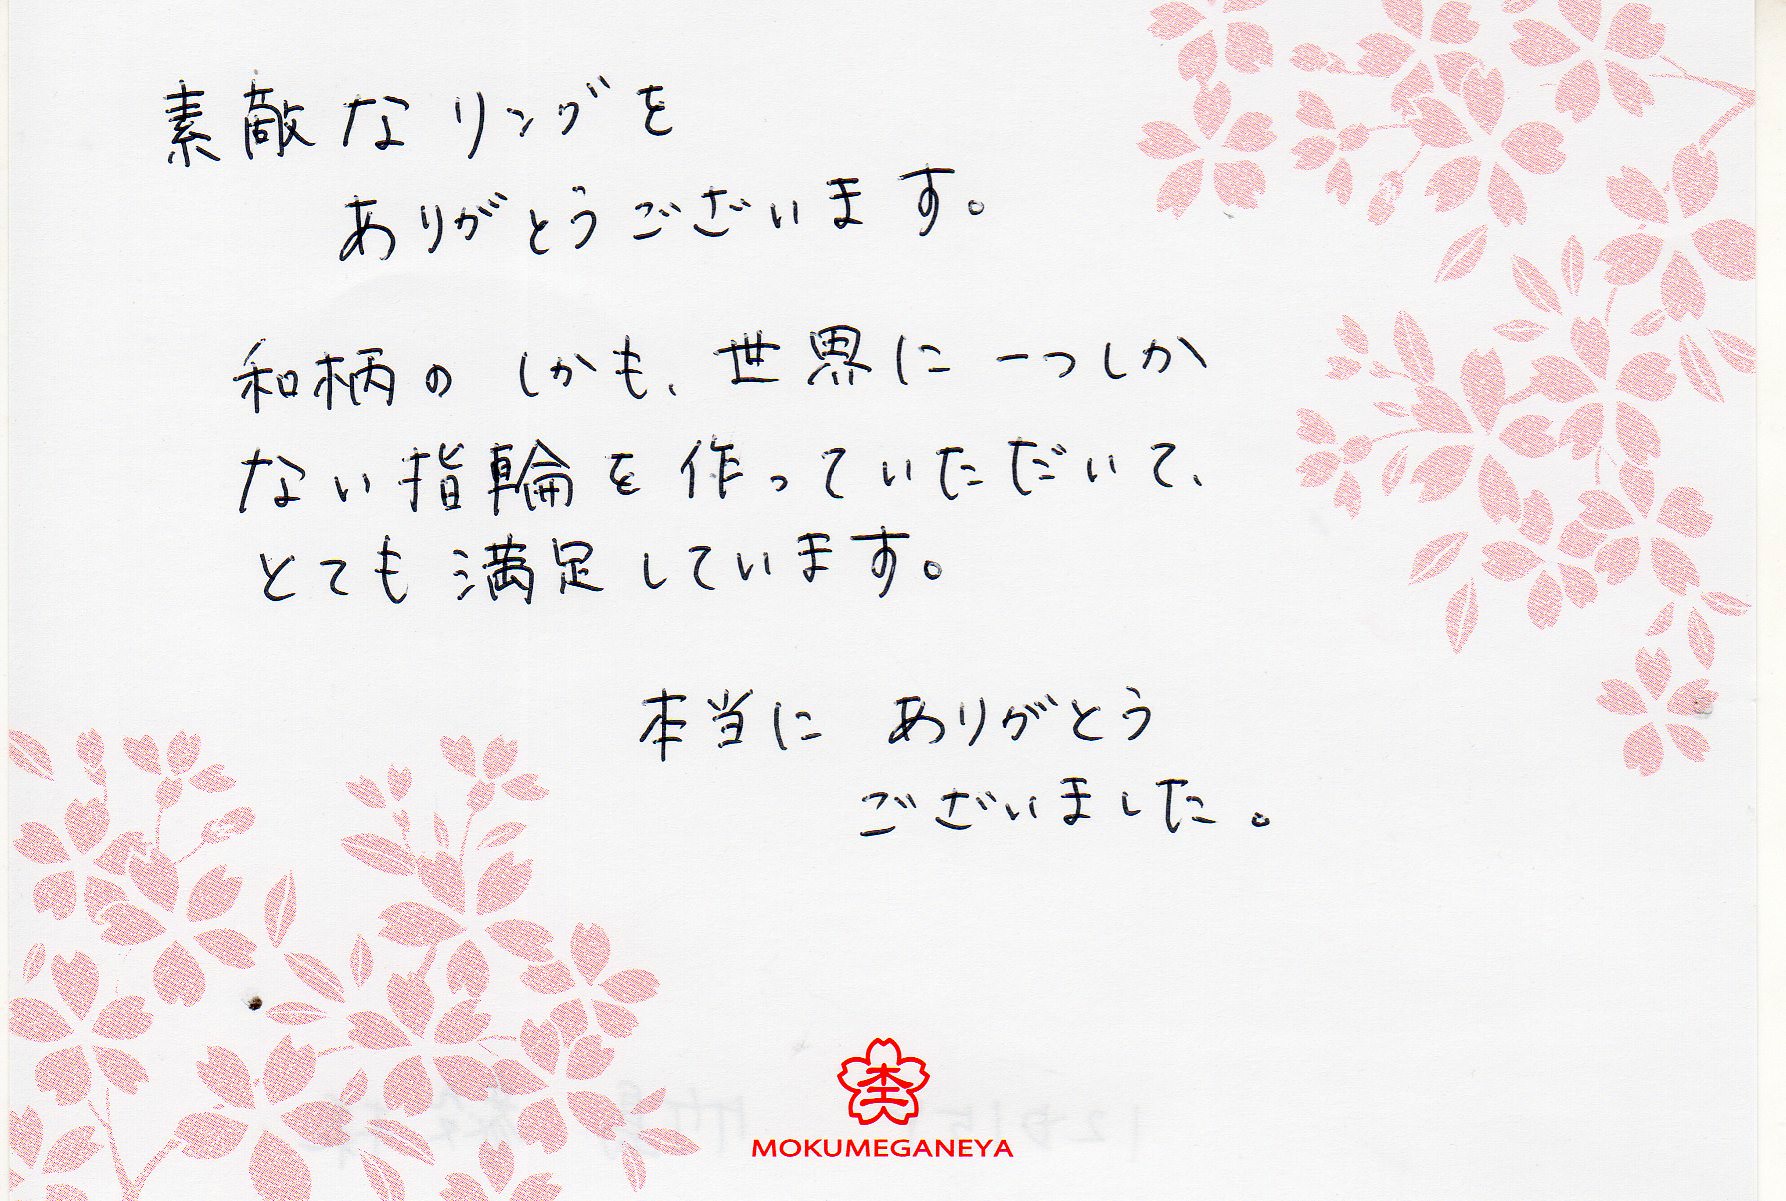 素敵なリングを
ありがとうございます。
和柄の しかも、世界に一つしか
ない指輪を作っていただいて、
とても満足しています。
本当に ありがとう
ございました。
MOKUMEGANEYA